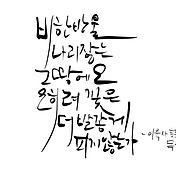 비 한 방울
나리잖는
그 땅에도
오히려 꽃은
더 발갛게
피지 않는가
-이육사